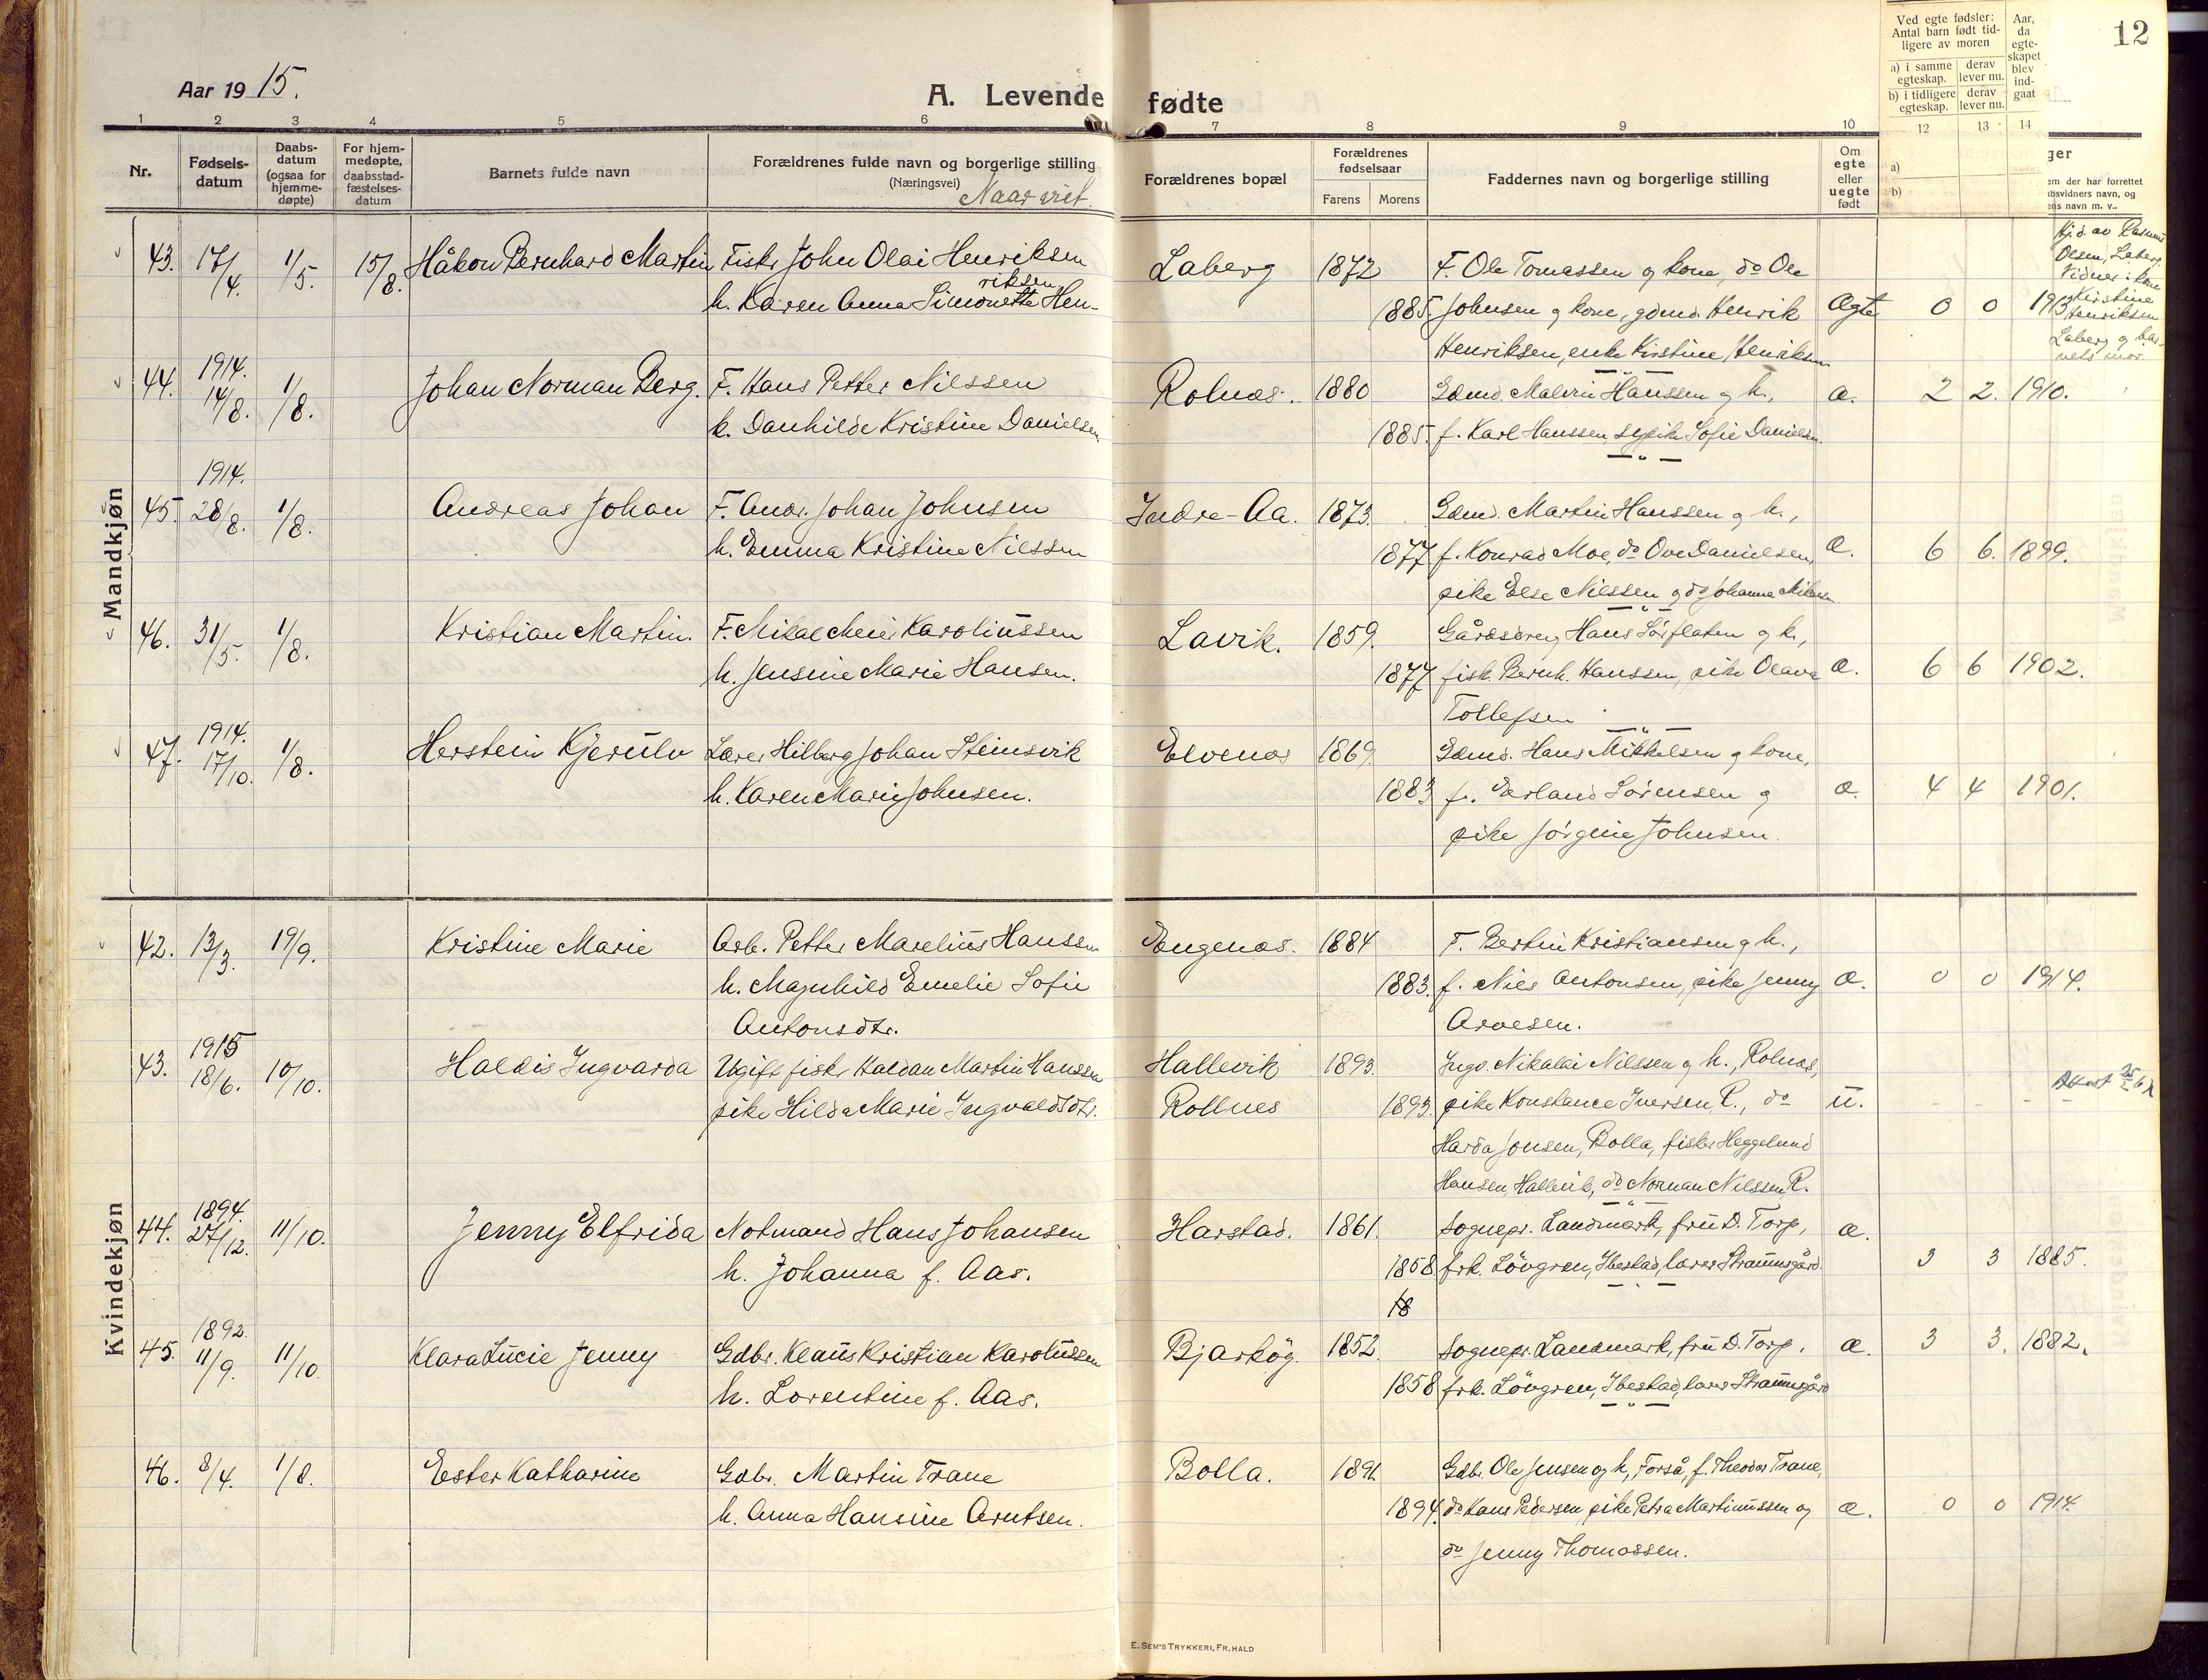 Aar 19 15.
A. Levende fødte
12
1 2 3 4 5 6 7 8 9 10 12 13 14
Nr.
Fødsels-
datum
Daabs-
datum
(ogsaa for
hjemme-
døpte)
For hjem-
medøpte,
daabsstad-
fæstelses-
datum
Barnets fulde navn
Forældrenes fulde navn og borgerlige stilling
(Næringsvei)
Forældrenes bopæl
Forældrenes
fødselsaar
Farens Morens
Faddernes navn og borgerlige stilling
Om
egte
eller
uegte
født
Ved egte fødsler:
Antal barn født tid-
ligere av moren
a) i samme
egteskap.
derav
lever nu.
b) i tidligere
egteskap.
derav
lever nu.
Aar,
da
egte-
skapet
blev
ind-
gaat
a)
b)
ger
em der har forrettet
bsvidners navn, og
ens navn m. v..
Mandkjøn
43. 17/4. 1/5. 15/8. Håkon Bernhard Martin Fisker John Olai Henriksen Laberg 1872 F. Ole Tomassen og kone, do Ole
h. Karen Anna Simonette Henriksen 1885. Johnsen og kone, gdmd. Henrik Ægte 0 0 1913
Henriksen, enke Kirstine Henriksen
Hj.d. av Rasmus
Olsen, Laberg.
Vidner: kone
Kirstine
Henriksen
Laberg og bar-
nets mor.
44. 1914. 14/8. 1/8. Johan Norman Berg. F. Hans Petter Nilssen Rolnæs. 1880 Gdmd. Malvin Hanssen og h., æ. 2 2. 1910.
k. Danhilde Kristine Danielsen 1885. f. Karl Hanssen, sypike Sofie Danielsen.
45. 1914. 28/8. 1/8. Andreas Johan F. Andr. Johan Johnsen Indre-Aa. 1873. Gdmd. Martin Hanssen og h.,
h. Emma Kristine Nilssen 1877 f. Konrad Moe, do Ove Danielsen, æ. 6 6. 1899.
pike Else Nilssen og do Johanna Nilssen.
46. 31/5. 1/8. Kristian Martin. F. Mikal Meier Karolinssen Lavik. 1859. Gårdsbrug. Hans Sørflaten og k.,
h. Jensine Marie Hansen. 1877 fisk. Bernh. Hanssen, pike Olava æ. 6 6 1902.
Tollefsen
47. 1914. 17/10. 1/8. Herstein Kjerulv Lærer Hilberg Johan Steinsvik Elvenæs 1869. Gdmd. Hans Mikkelsen og kone,
h. Karen Marie Johnsen. 1883 f. Erland Sørensen og æ. 4 4 1901.
pike Jørgine Johnsen.
Kvindekjøn
42. 13/3. 19/9. Kristine Marie Arb. Petter Marelius Hanssen Engenæs. 1884 F. Bertin Kristiansen og h.,
h. Magnhild Emelie Sofie 1883. f. Nils Antonsen, pike Jenny æ. 0 0 1914.
Antonsdtr. Arvesen.
43. 1915 18/6. 10/10. Haldis Ingvarda Ugift fisker Haldan Martin Hanssen Hallevik 1893. Ingv. Nikolai Nilssen og h., Rolnæs,
pike Hilda Marie Ingvaldsdtr. Rollnes 1893. pike Konstance Iversen R., do u.
Harda Jonsen, Bolla, fisker Heggelund
Hansen, Hallevik, do Norman Nilssen R.
44. 1894. 27/12. 11/10. Jenny Elfrida Notmand Hans Johansen Harstad. 1861. Sognepr. Landmark, fru D. Torp, æ.
h. Johanna f. Aas. 1858 frk. Løvgren, Ibestad, lærer Straumsgård. 3 3 1885.
18
45. 1892. 11/9. 11/10. Klara Lucie Jenny Gdbr. Klaus Kristian Karolussen Bjarkøg. 1852. Sognepr. Landmark, fru D. Torp, æ. 3 3. 1882.
h. Lorentine f. Aas. 1858 frk. Løvgren, Ibestad, lærer Straumsgård
46. 8/4. 1/8. Ester Katharine Gdbr. Martin Trane Bolla. 1891. Gdbr. Ole Jensen og h, Forså, f. Theodor Trane,
h. Anna Hansine Arntsen. 1894. do Hans Pedersen, pike Petra Martinussen og æ. 0 0 1914.
do Jenny Thomassen.
E. SEM'S TRYKKERI, FR.HALD